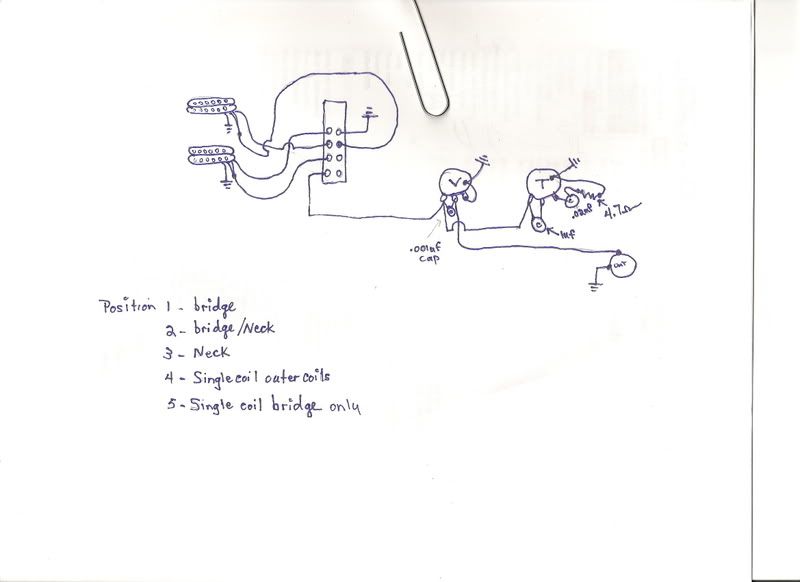 V
T
.02uf
4.7Ω
.1uf
.001uf
cap
OUT
Position 1 - bridge
2 - bridge/Neck
3 - Neck
4 - Single coil outer coils
5 - Single coil bridge only